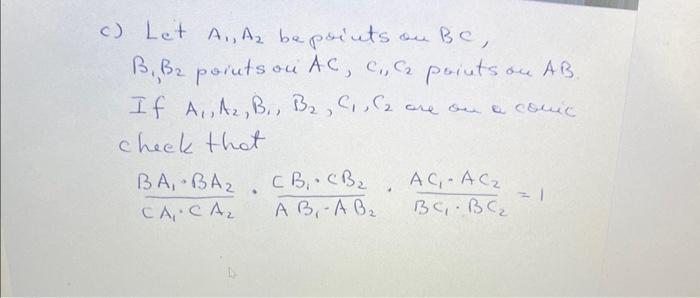 c) Let A₁, A₂ be points on BC,
B₁, B₂ points on AC, C₁, C₂ points on AB.
If A₁, A₂, B₁, B₂, C₁, C₂ are on a conic
check that
BA₁·BA₂ / CA₁·CA₂ · CB₁·CB₂ / AB₁·AB₂ · AC₁·AC₂ / BC₁·BC₂ = 1